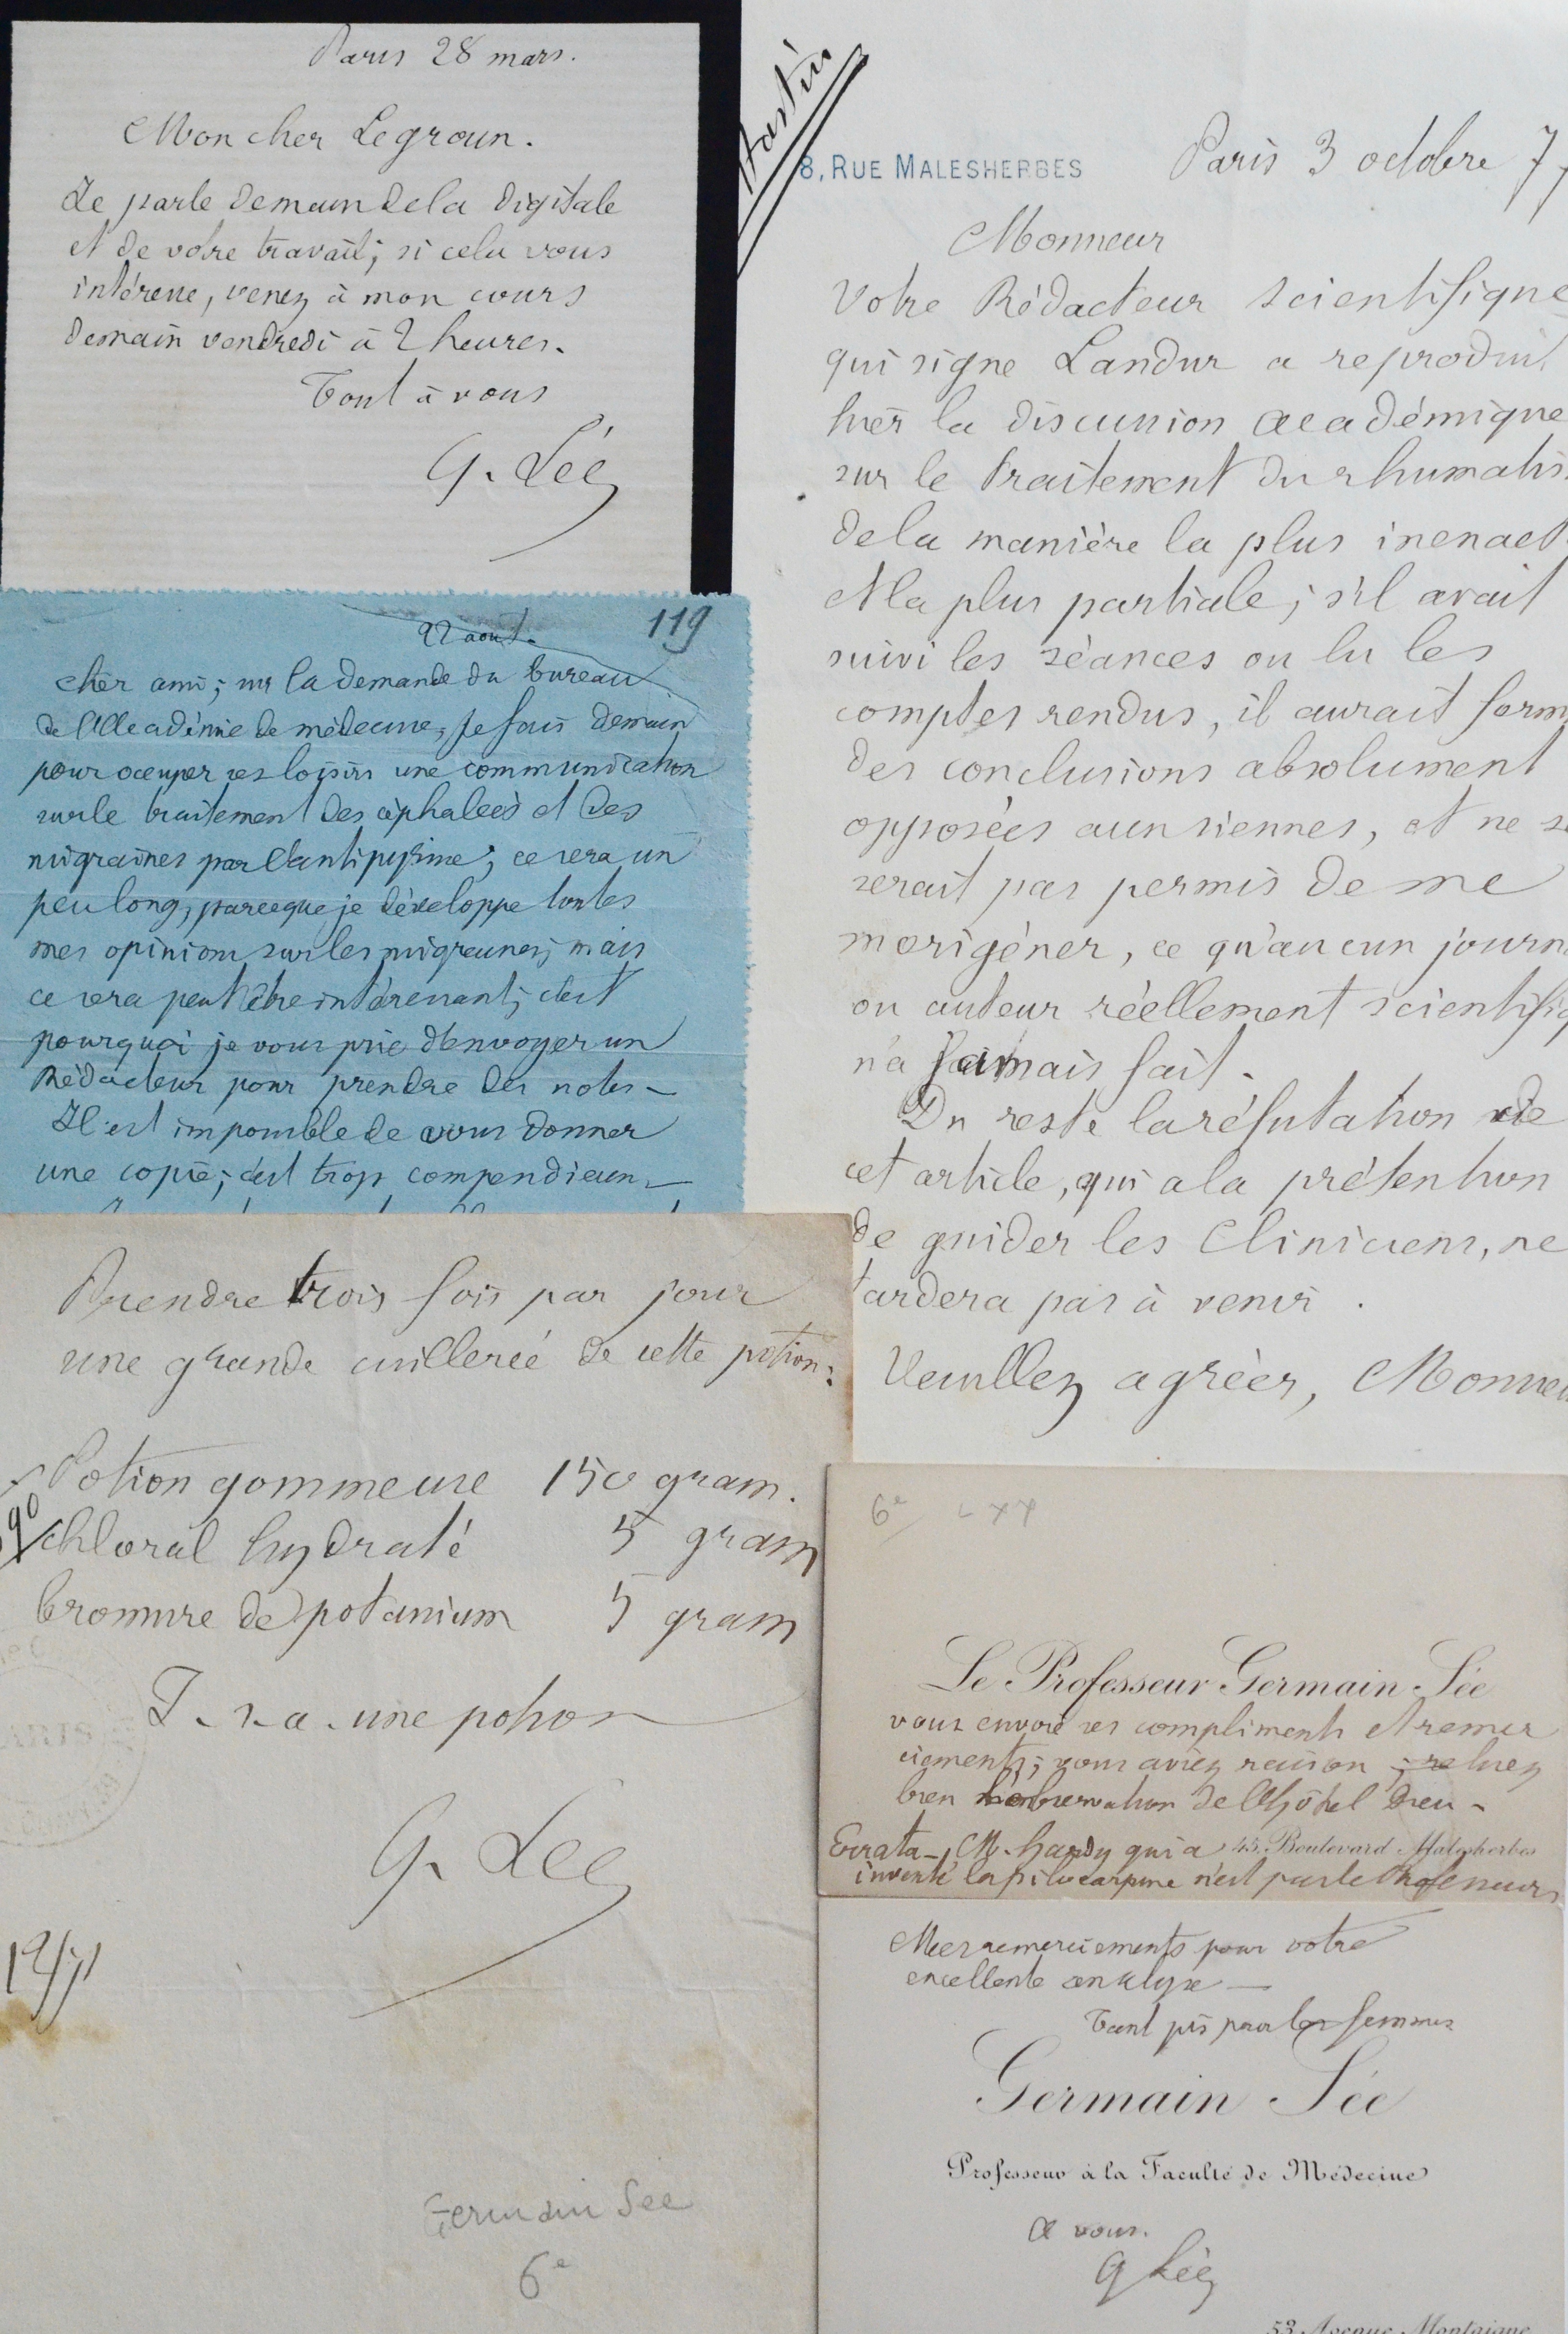 Paris 28 mars.
Mon cher Legroun.
Je parle demain de la digitale
et de votre travail; si cela vous
intéresse, venez à mon cours
demain vendredi à 2 heures.
Tout à vous
G. Sée
119
22 aout.
cher ami; sur la demande du bureau
de l'Académie de médecine, je fais demain
pour occuper ses loisirs une communication
sur le traitement des céphalées et des
migraines par l'antipyrine; ce sera un
peu long, parceque je développe toutes
mes opinions sur les migraines; mais
ce sera peut être intéressant; c'est
pourquoi je vous prie d'envoyer un
Rédacteur pour prendre des notes -
Il est impossible de vous donner
une copie; c'est trop compendieux -
Prendre trois fois par jour
une grande cuillerée de cette potion:
Potion gommeuse 150 gram.
chloral hydraté 5 gram
bromure de potassium 5 gram
F. s. a. une potion
G. Sée
Germain Sée
6e
8, RUE MALESHERBES
Paris 3 octobre 77
Monsieur
Votre Rédacteur scientifique
qui signe Landur a reproduit
hier la discussion académique
sur le traitement du rhumatis
de la manière la plus inexact
et la plus partiale; s'il avait
suivi les séances ou lu les
comptes rendus, il aurait form
des conclusions absolument
opposées aux siennes, et ne se
serait pas permis de me
morigéner, ce qu'aucun journ
ou auteur réellement scientifiq
n'a jamais fait.
Du reste la réfutation de
cet article, qui a la prétention
de guider les Cliniciens, ne
tardera pas à venir.
Veuillez agréer, Monsieu
6e
Le Professeur Germain Sée
vous envoie ses compliments et remer
ciements; vous aviez raison; relisez
bien l'observation de l'hôtel Dieu -
Errata - M. Hardy qui a
45, Boulevard Malesherbes
inventé la pilocarpine n'est pas le Professeur
Mes remerciements pour votre
excellente analyse -
Tant pis pour les femmes
Germain Sée
Professeur à la Faculté de Médecine
A vous.
G Sée
53 Avenue Montaigne